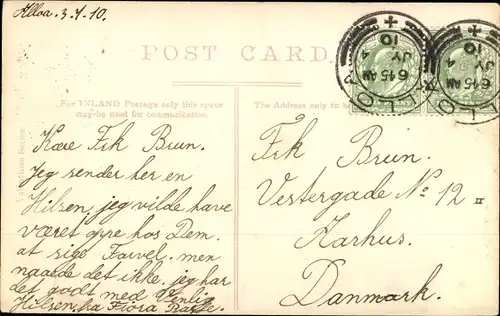 Alloa. 3.7.10.
POST CARD.
For INLAND Postage only this space
may be used for communication.
The Address only to be
Kære Frk Bruun.
Jeg sender her en
Hilsen, jeg vilde have
været oppe hos Dem.
at sige Farvel. men
naaede det ikke. jeg har
det godt med Venlig
Hilsen, fra Flora
Frk Bruun.
Vestergade No 12 II
Aarhus.
Danmark.
6 15 AM
JY 4
10
6 15 AM
JY 4
10